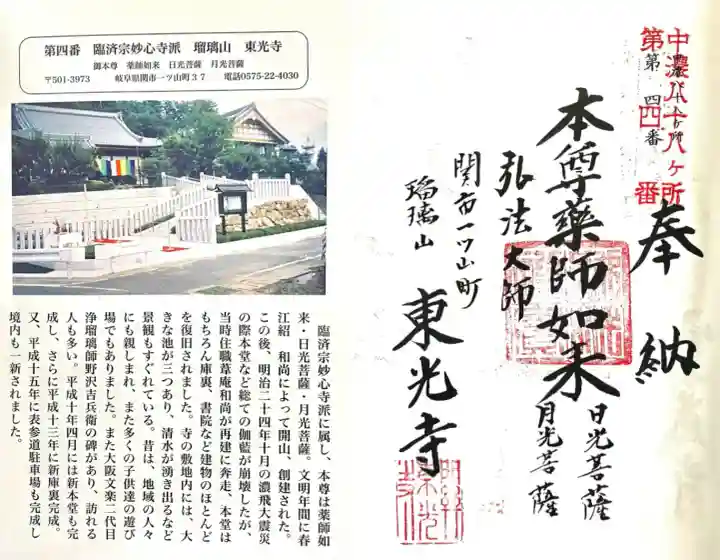 第四番　臨済宗妙心寺派　瑠璃山　東光寺
御本尊　薬師如来　日光菩薩　月光菩薩
〒501-3973　岐阜県関市一ツ山町37　電話0575-22-4030
臨済宗妙心寺派に属し、本尊は薬師如
来・日光菩薩・月光菩薩。文明年間に春
江紹　和尚によって開山、創建された。
この後、明治二十四年十月の濃飛大震災
の際本堂など総ての伽藍が崩壊したが、
当時住職葦庵和尚が再建に奔走、本堂は
もちろん庫裏、書院など建物のほとんど
を復旧されました。寺の敷地内には、大
きな池が三つあり、清水が湧き出るなど
景観もすぐれている。昔は、地域の人々
にも親しまれ、また多くの子供達の遊び
場でもありました。また大阪文楽二代目
浄瑠璃師野沢吉兵衛の碑があり、訪れる
人も多い。平成十年四月には新本堂も完
成し、さらに平成十三年に新庫裏完成。
又、平成十五年に表参道駐車場も完成し
境内も一新されました。
中濃八十八ヶ所
第四番
第四番
奉納
本尊薬師如来
日光菩薩
月光菩薩
弘法大師
関市一ツ山町
瑠璃山
東光寺